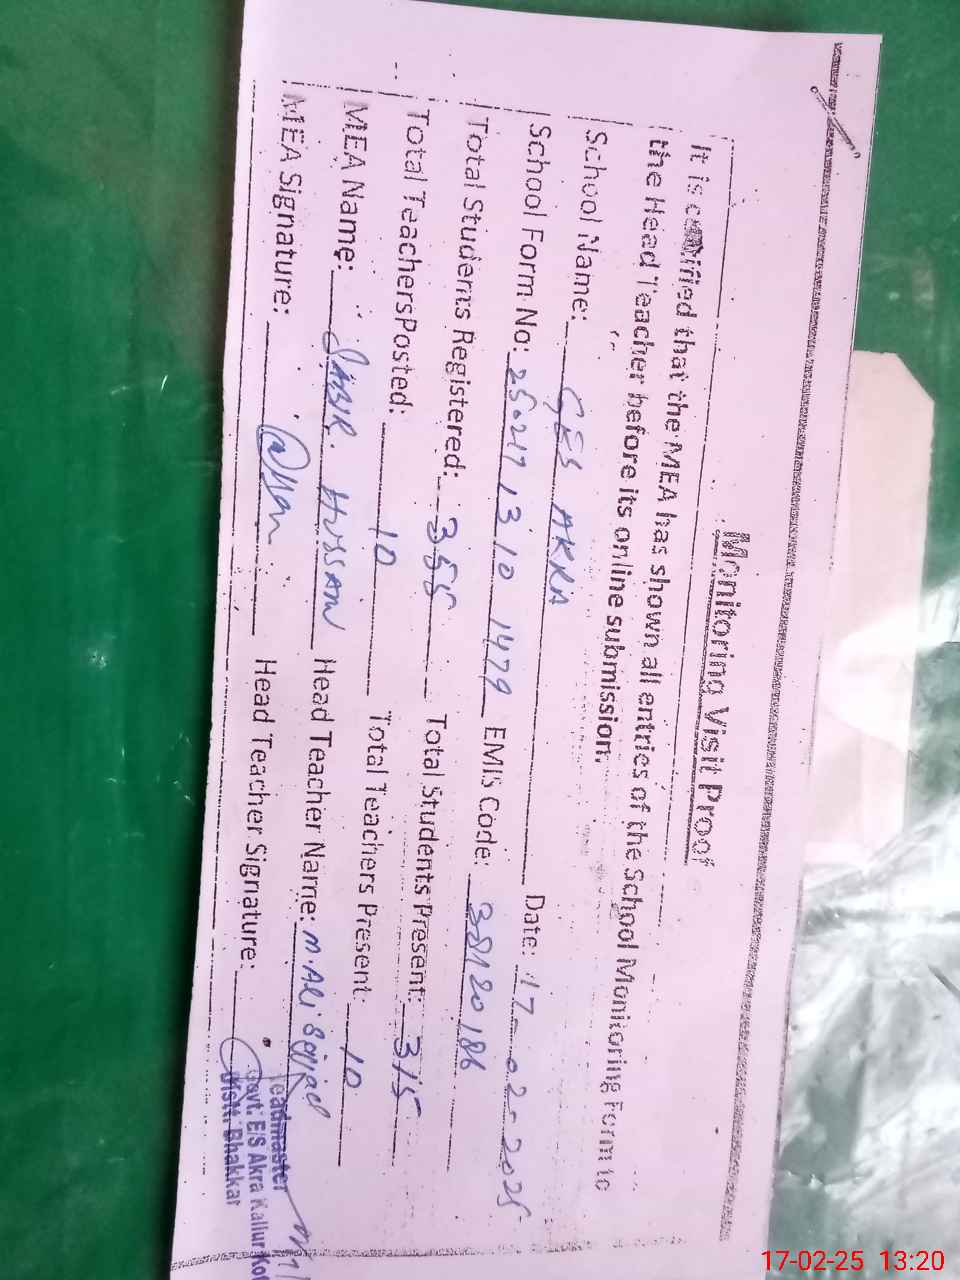 Monitoring Visit Proof
It is certified that the MEA has shown all entries of the School Monitoring Form to
the Head Teacher before its online submission.
School Name: GES AKRA Date: 17-02-2025
School Form No: 250217 13 10 1479 EMIS Code: 38120186
Total Students Registered: 355 Total Students Present: 315
Total TeachersPosted: 10 Total Teachers Present: 10
MEA Name: SABIR HUSSAIN Head Teacher Name: M. Ali
MEA Signature: Head Teacher Signature:
Headmaster
Govt: E/S Akra Kallur Kot
Distt: Bhakkar
17-02-25 13:20